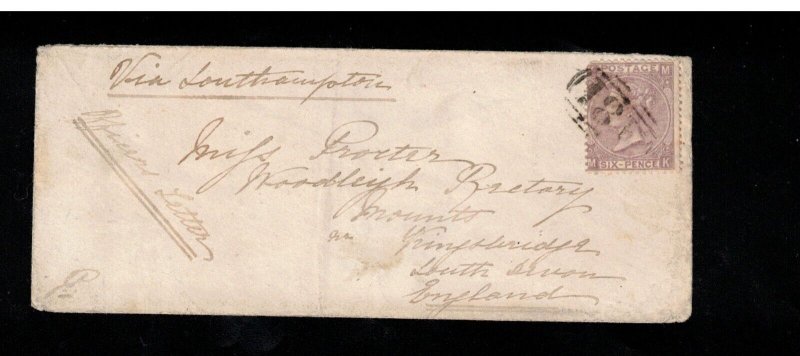 Via Southampton
Officers Letter
Miss Procter
Woodleigh Rectory
Mounts
nr Kingsbridge
South Devon
England
POSTAGE M
M SIX-PENCE K